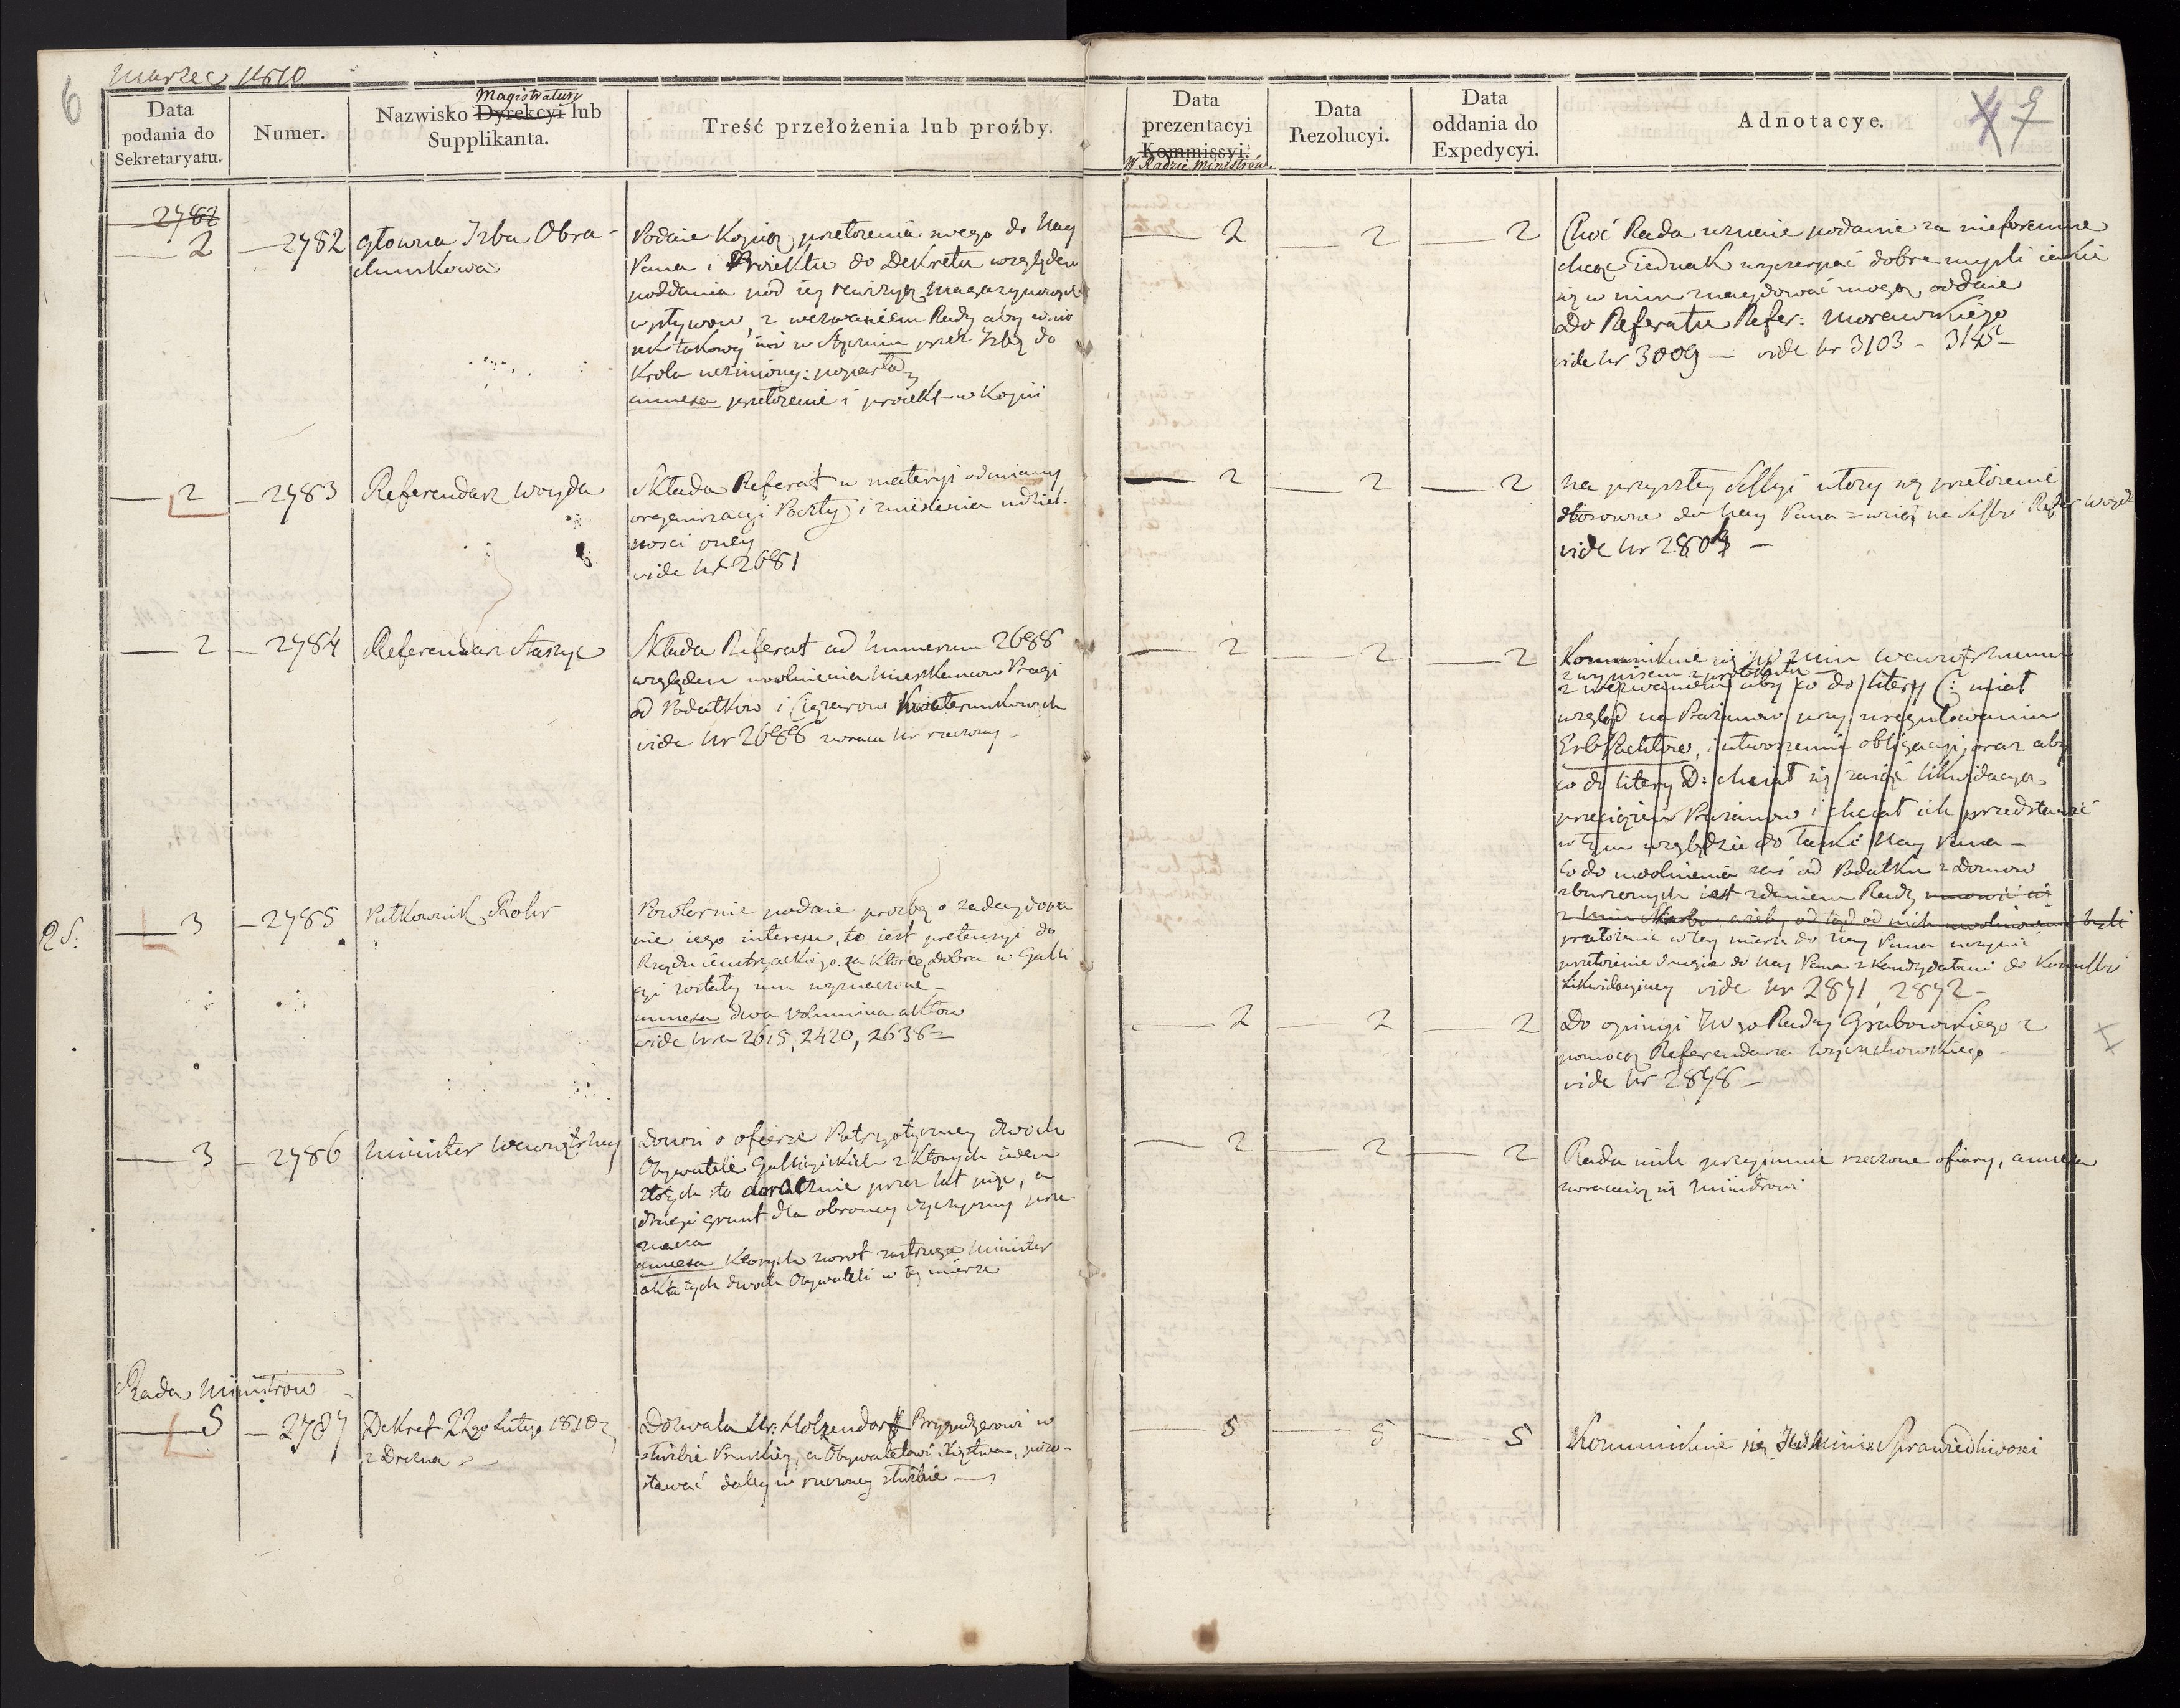 6
Marzec 1810
9
Data podania do Sekretaryatu.
Numer.
Magistratury
Nazwisko Dyrekcyi lub Supplikanta.
Treść przełożenia lub proźby.
Data prezentacyi Kommissyi.
W Radzie Ministrów.
Data Rezolucyi.
Data oddania do Expedycyi.
Adnotacye.
2782
2 — 2782
Głowna Izba Obra-
chunkowa
Podaie Kopią przełożenia swego do Nay
Pana i Proiektu do Dekretu względem
poddania pod iey rewizyą Magazynowych
wpływow, z wezwaniem Rady aby wnio
sek takowy iuż w Styczniu przez Izbę do
Krola uczyniony: poparła
annexa przełożenie i proiekt w Kopii
— 2 — 2 — 2
Choć Rada uznaie podanie za nieforemne
chcąc iednak wyczerpać dobre myśli iakie
się w nim znaydować mogą, oddaie
do Referatu Refer: Morawskiego
vide Nr 3009 — vide Nr 3103 —
— 2 — 2783
Referendarz Woyda
Składa Referat w materyi odmiany
organizacyi Poczty i zniesienia udziel-
ności oney
vide Nr 2681
— 2 — 2 — 2
na przyszłey Sessyi utoży się przełożenie
stosowne do Nay Pana = wziął na Sessyi Refer Woyda
vide Nr 2804 —
— 2 — 2784
Referendarz Staszyc
Składa Referat ad Numerum 2688
względem uwolnienia Mieszkancow Pragi
od Podatkow i Ciężarow Kwaterunkowych
vide Nr 2688 zwraca Nr rzeczony —
— 2 — 2 — 2
Kommunikuie się JW Min Wewnętrznemu
z wypisem z protokołu
z wezwaniem aby co do litery C: miał
wzgląd na Prażanow przy uregulowaniu
i utworzeniu obligacyi, oraz aby
co do litery D: chciał się zaiąć likwidacyą
Prażanow i chciał ich przedstawić
w tym względzie do łaski Nay Pana —
Co do uwolnienia zaś od Podatku z Domow
zburzonych iest zdaniem Rady
przełożenie w tey mierze do Nay Pana uczynić
przełożenie drugie do Nay Pana z Kandydatami do Kommissyi
Likwidacyiney vide Nr 2871, 2872 —
25:
— 3 — 2785
Pułkownik Rohr
Powtornie podaie prozbę o zadecydowa
nie iego interesu, to iest pretensyi do
Rządu Austryackiego za ktorą Dobra w Galli
cyi zostały mu wyznaczone —
annexa dwa Volumina aktow
vide Nra 2615, 2420, 2638 =
— 2 — 2 — 2
Do opinii JW go Radcy Grabowskiego z
pomocą Referendarza Wyczechowskiego
vide Nr 2878 —
— 3 — 2786
Minister Wewnętrzny
Donosi o ofierze Patryotyczney dwoch
Obywateli Gallicyiskich z ktorych ieden
złotych sto dorocznie przez lat pięć, a
drugi grunt dla obroncy Oyczyzny prze-
znacza
annexa ktorych zwrot zastrzega Minister
akta tych dwoch Obywateli w tey mierze
— 2 — 2 — 2
Rada mile przyimuie rzeczone ofiary, annexa
zwracaią się Ministrowi
Rada Ministrow
— 5 — 2787
Dekret 22go Lutego 1810
z Drezna
Dozwala Hr: Holzendorff Brygadyerowi w
służbie Pruskiey, a Obywatelowi Xięstwa, pozo-
stawać daley w rzeczoney służbie —
— 5 — 5 — 5
Kommunikuie się JW Minis Sprawiedliwosci